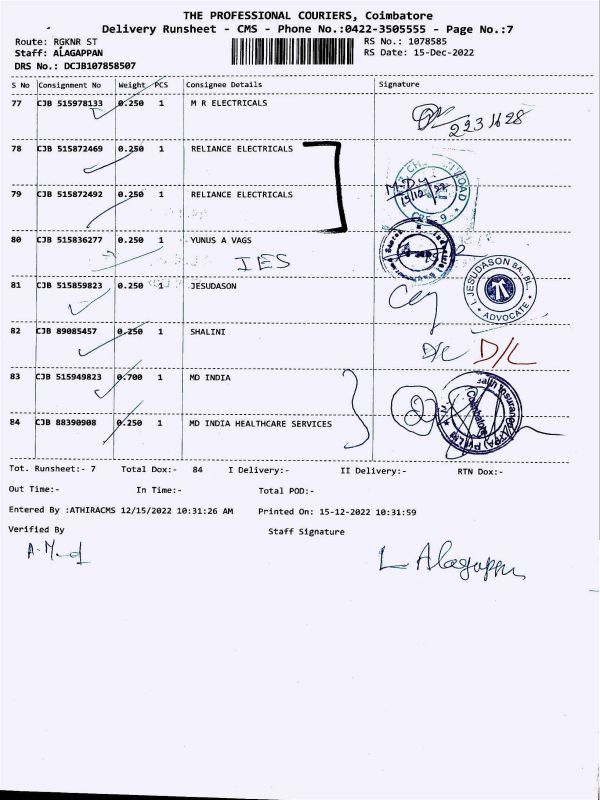 THE PROFESSIONAL COURIERS, Coimbatore
Delivery Runsheet - CMS - Phone No.:0422-3505555 - Page No.:7
Route: RGKNR ST
RS No.: 1078585
Staff: ALAGAPPAN
RS Date: 15-Dec-2022
DRS No.: DCJB107858507
S No Consignment No Weight PCS Consignee Details Signature
77 CJB 515978133 0.250 1 M R ELECTRICALS
2231628
78 CJB 515872469 0.250 1 RELIANCE ELECTRICALS
79 CJB 515872492 0.250 1 RELIANCE ELECTRICALS
80 CJB 515836277 0.250 1 YUNUS A VAGS
IES
81 CJB 515859823 0.250 1 JESUDASON
I. JESUDASON BA. BL.
ADVOCATE
82 CJB 89085457 0.250 1 SHALINI
D/L D/L
83 CJB 515949823 0.700 1 MD INDIA
2
84 CJB 88390908 0.250 1 MD INDIA HEALTHCARE SERVICES
Coimbatore
Tot. Runsheet:- 7 Total Dox:- 84 I Delivery:- II Delivery:- RTN Dox:-
Out Time:- In Time:- Total POD:-
Entered By :ATHIRACMS 12/15/2022 10:31:26 AM Printed On: 15-12-2022 10:31:59
Verified By Staff Signature
L Alagappan